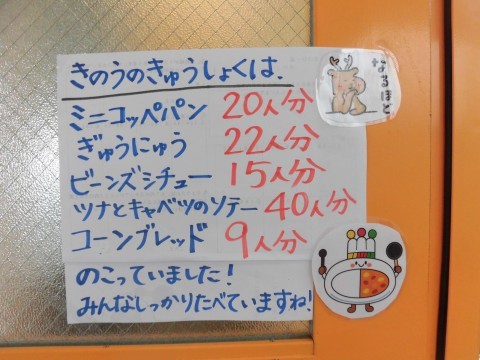 きのうのきゅうしょくは.
ミニコッペパン 20人分
ぎゅうにゅう 22人分
ビーンズシチュー 15人分
ツナとキャベツのソテー 40人分
コーンブレッド 9人分
のこっていました!
みんなしっかりたべていますね!
なるほど